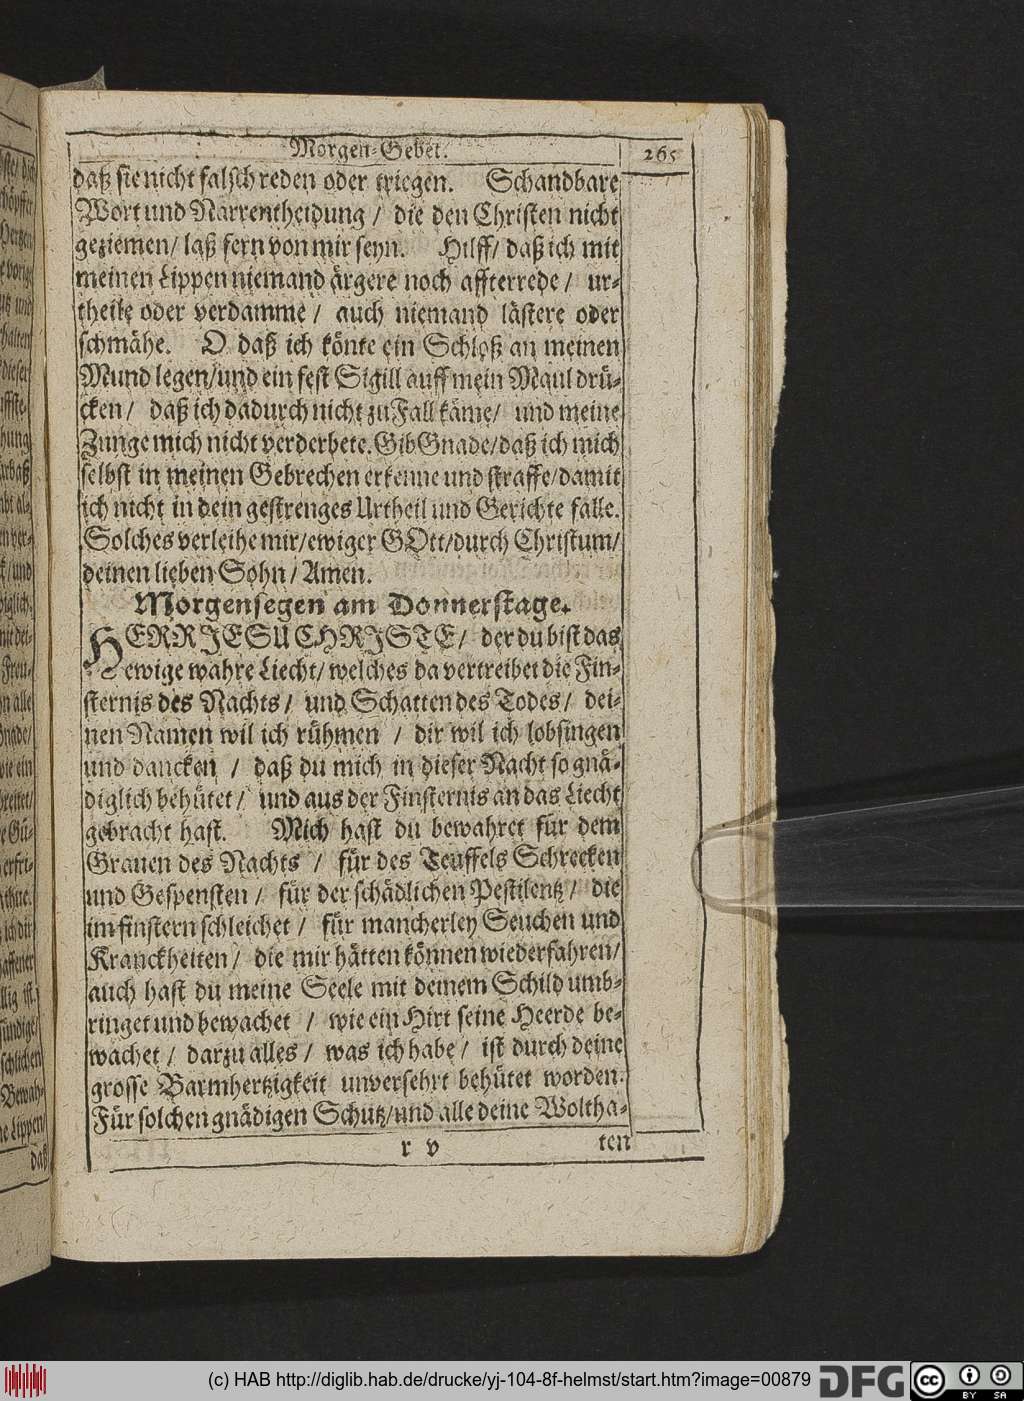 Morgen-Gebet. 265
daß sie nicht falsch reden oder triegen. Schandbare
Wort und Narrentheidung / die den Christen nicht
geziemen / laß fern von mir seyn. Hilff / daß ich mit
meinen Lippen niemand ärgere noch affterrede / ur-
theile oder verdamme / auch niemand lästere oder
schmähe. O daß ich könte ein Schloß an meinen
Mund legen / und ein fest Sigill auff mein Maul drü-
cken / daß ich dadurch nicht zu Fall käme / und meine
Zunge mich nicht verderbete. Gib Gnade / daß ich mich
selbst in meinen Gebrechen erkenne und straffe / damit
ich nicht in dein gestrenges Urtheil und Gerichte falle.
Solches verleihe mir / ewiger GOtt / durch Christum /
deinen lieben Sohn / Amen.
Morgensegen am Donnerstage.
HERR JESU CHRISTE / der du bist das
ewige wahre Liecht / welches da vertreibet die Fin-
sternis des Nachts / und Schatten des Todes / dei-
nen Namen wil ich rühmen / dir wil ich lobsingen
und dancken / daß du mich in dieser Nacht so gnä-
diglich behütet / und aus der Finsternis an das Liecht
gebracht hast. Mich hast du bewahret für dem
Grauen des Nachts / für des Teuffels Schrecken
und Gespensten / für der schädlichen Pestilentz / die
im finstern schleichet / für mancherley Seuchen und
Kranckheiten / die mir hätten können wiederfahren /
auch hast du meine Seele mit deinem Schild umb-
ringet und bewachet / wie ein Hirt seine Heerde be-
wachet / darzu alles / was ich habe / ist durch deine
grosse Barmhertzigkeit unversehrt behütet worden.
Für solchen gnädigen Schutz / und alle deine Woltha-
r v ten
(c) HAB http://diglib.hab.de/drucke/yj-104-8f-helmst/start.htm?image=00879
DFG
cc
BY SA